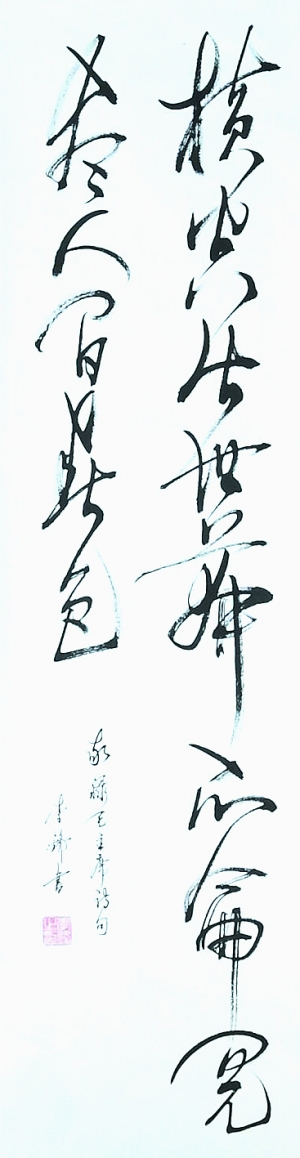 横空出世莽昆仑阅
尽人间春色
敬录毛主席诗句
李 书